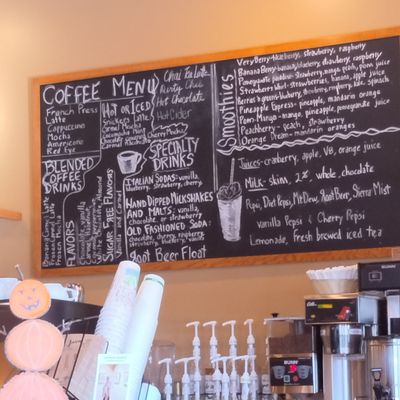 COFFEE MENU
French Press
Latte
Cappuccino
Mocha
Americano
Red Eye
BLENDED
COFFEE
DRINKS
FLAVORS
HOT OR ICED
Snickers Latte
Caramel Mocha
SUGAR FREE FLAVORS
Vanilla and Caramel
Chai Tea Latte
Dirty Chai
Hot Chocolate
Hot Cider
Cherry Mocha
SPECIALTY
DRINKS
ITALIAN SODAS: vanilla,
blueberry, strawberry, cherry,
HAND DIPPED MILKSHAKES
AND MALTS: vanilla,
chocolate, or strawberry
OLD FASHIONED SODA:
chocolate, cherry, raspberry,
strawberry, blueberry, vanilla
Root Beer Float
Smoothies
Very Berry-blueberry, strawberry, raspberry
Strawberry whirl-strawberries, banana, apple juice
Pineapple Express-pineapple, mandarin orange
Pom-Mango-mango, pineapple, pomegranate juice
Peachberry-peach, strawberry
Orange Dream-mandarin oranges
Juices-cranberry, apple, V8, orange juice
Milk-skim, 2%, whole, chocolate
Pepsi, Diet Pepsi, Mt Dew, Root Beer, Sierra Mist
Vanilla Pepsi & Cherry Pepsi
Lemonade, Fresh brewed iced tea
BUNN
BUNN